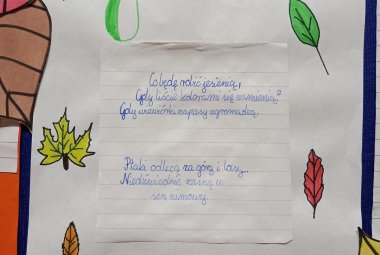 Co będę robić jesienią,
Gdy liście kolorami się zamienią?
Gdy wiewiórka zapasy zgromadzą.
Ptaki odlecą za góry i lasy..
Niedźwiedzie zasną w
sen zimowy.